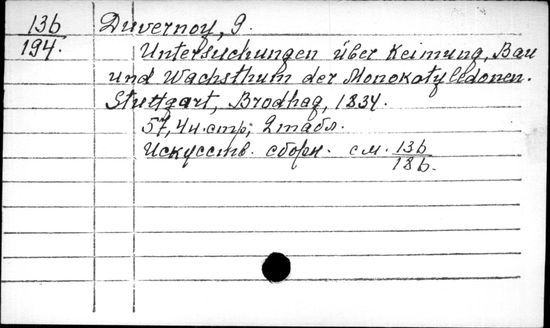 13b Duvernoy, G.
194. Untersuchungen über Keimung, Bau
und Wachsthum der Monokotylledonen.
Stuttgart, Brodhag, 1834.
57, 4н.стр; 2 табл.
Искусств. сборн. см. 13b
18b.